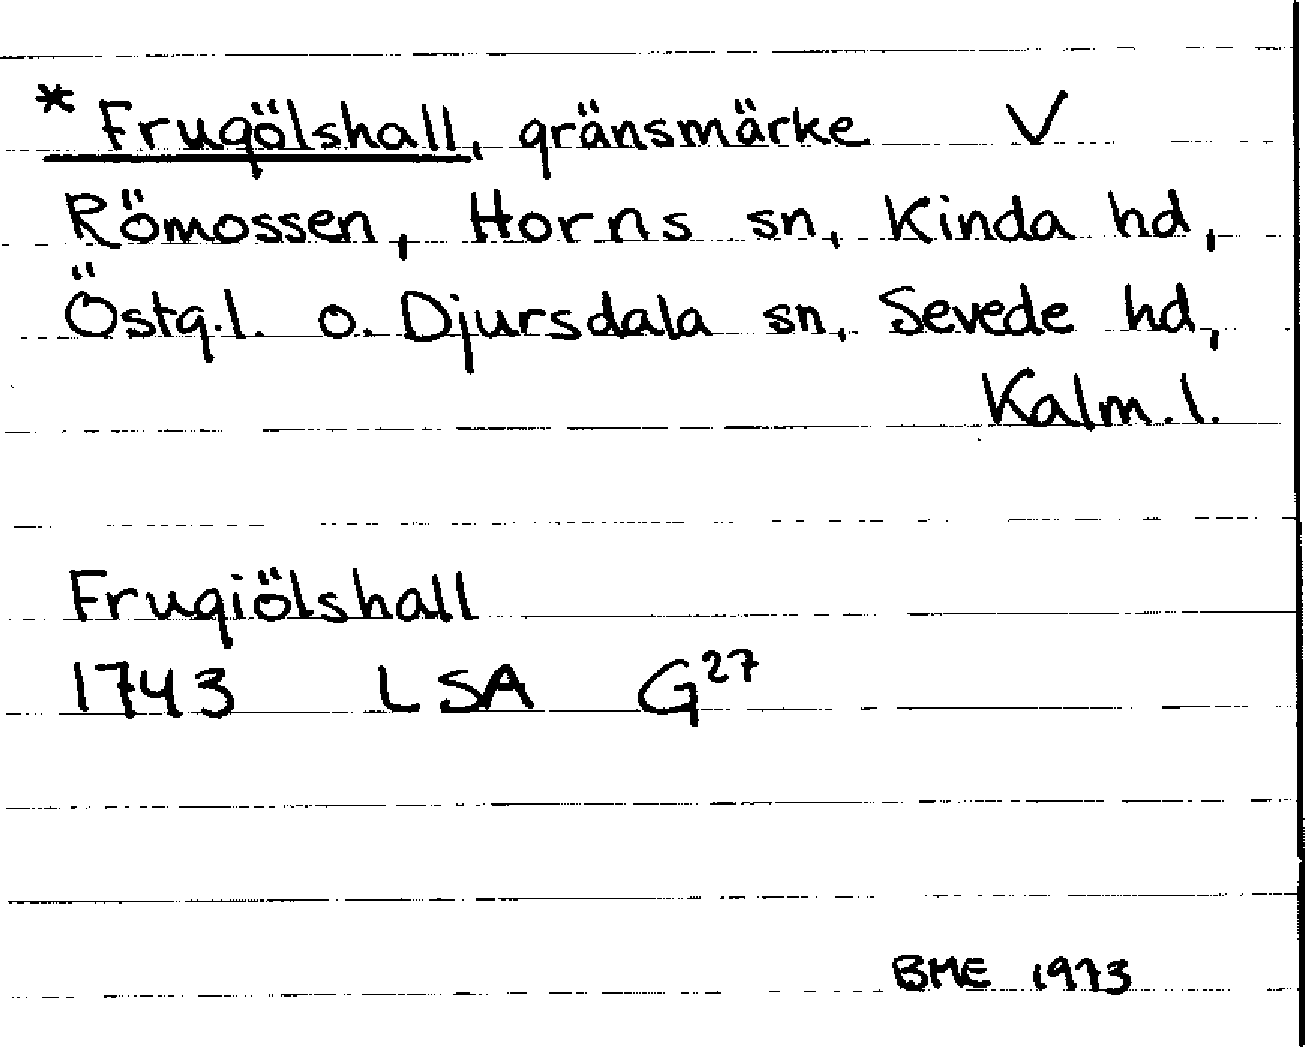 * Frugölshall, gränsmärke V
Römossen, Horns sn, Kinda hd,
Östg.l. o. Djursdala sn, Sevede hd,
Kalm.l.
Frugiölshall
1743 LSA G²⁷
BME 1973